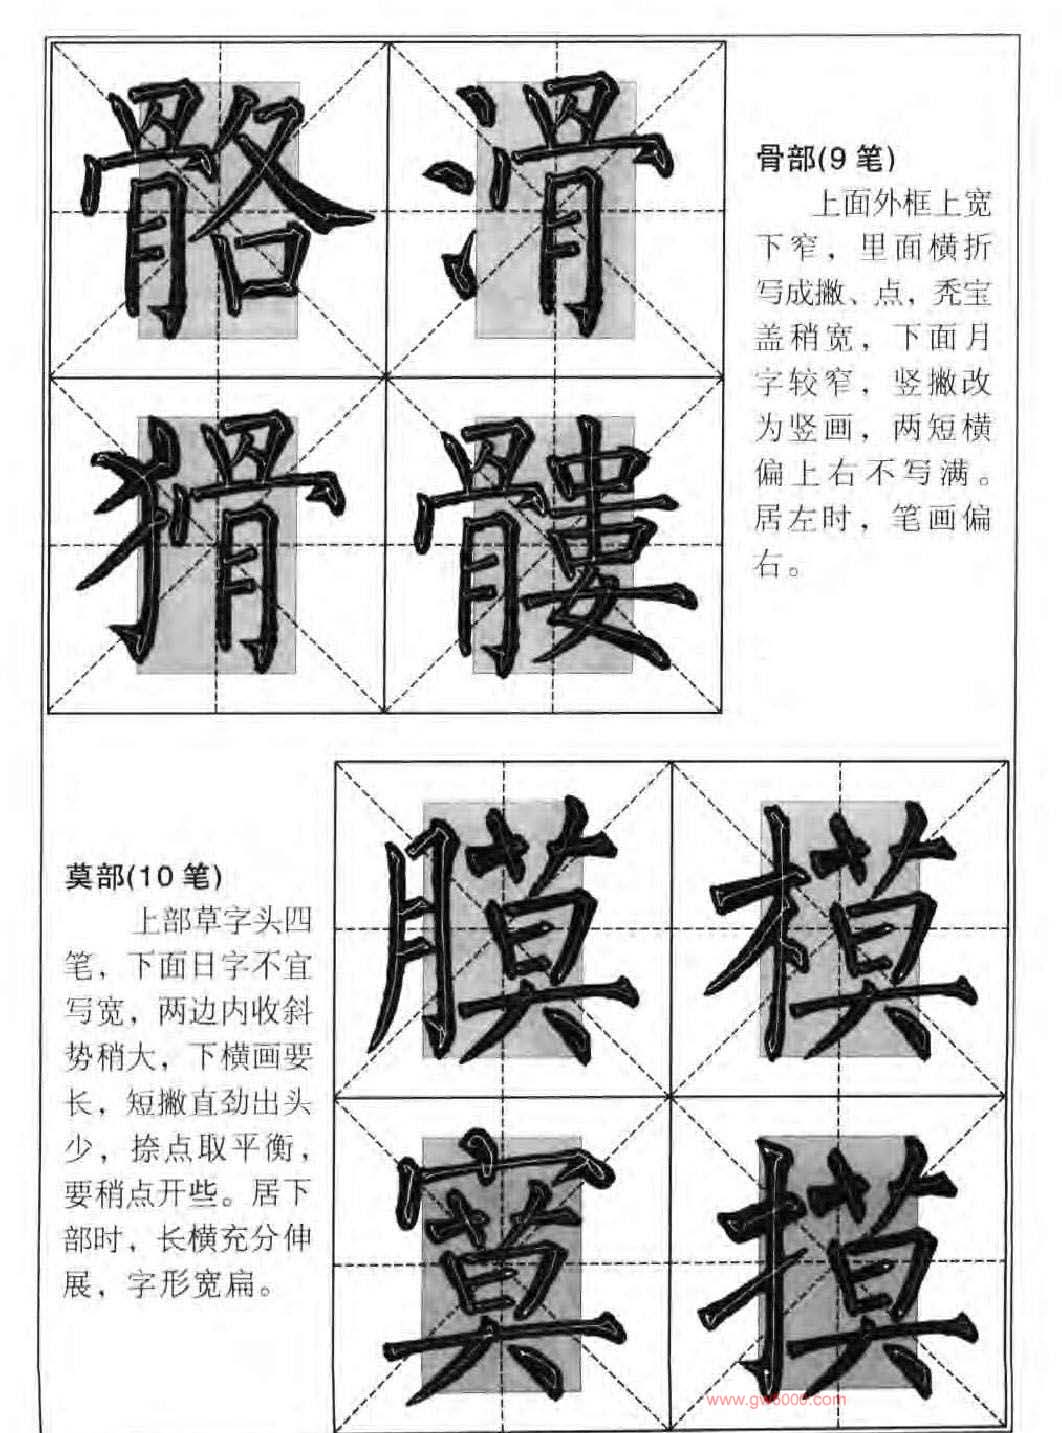 骼 滑
猾 髏
骨部(9 笔)
上面外框上宽
下窄，里面横折
写成撇、点，秃宝
盖稍宽，下面月
字较窄，竖撇改
为竖画，两短横
偏上右不写满。
居左时，笔画偏
右。
莫部(10 笔)
上部草字头四
笔，下面日字不宜
写宽，两边内收斜
势稍大，下横画要
长，短撇直劲出头
少，捺点取平衡，
要稍点开些。居下
部时，长横充分伸
展，字形宽扁。
膜 模
寞 摸
www.gw8000.com